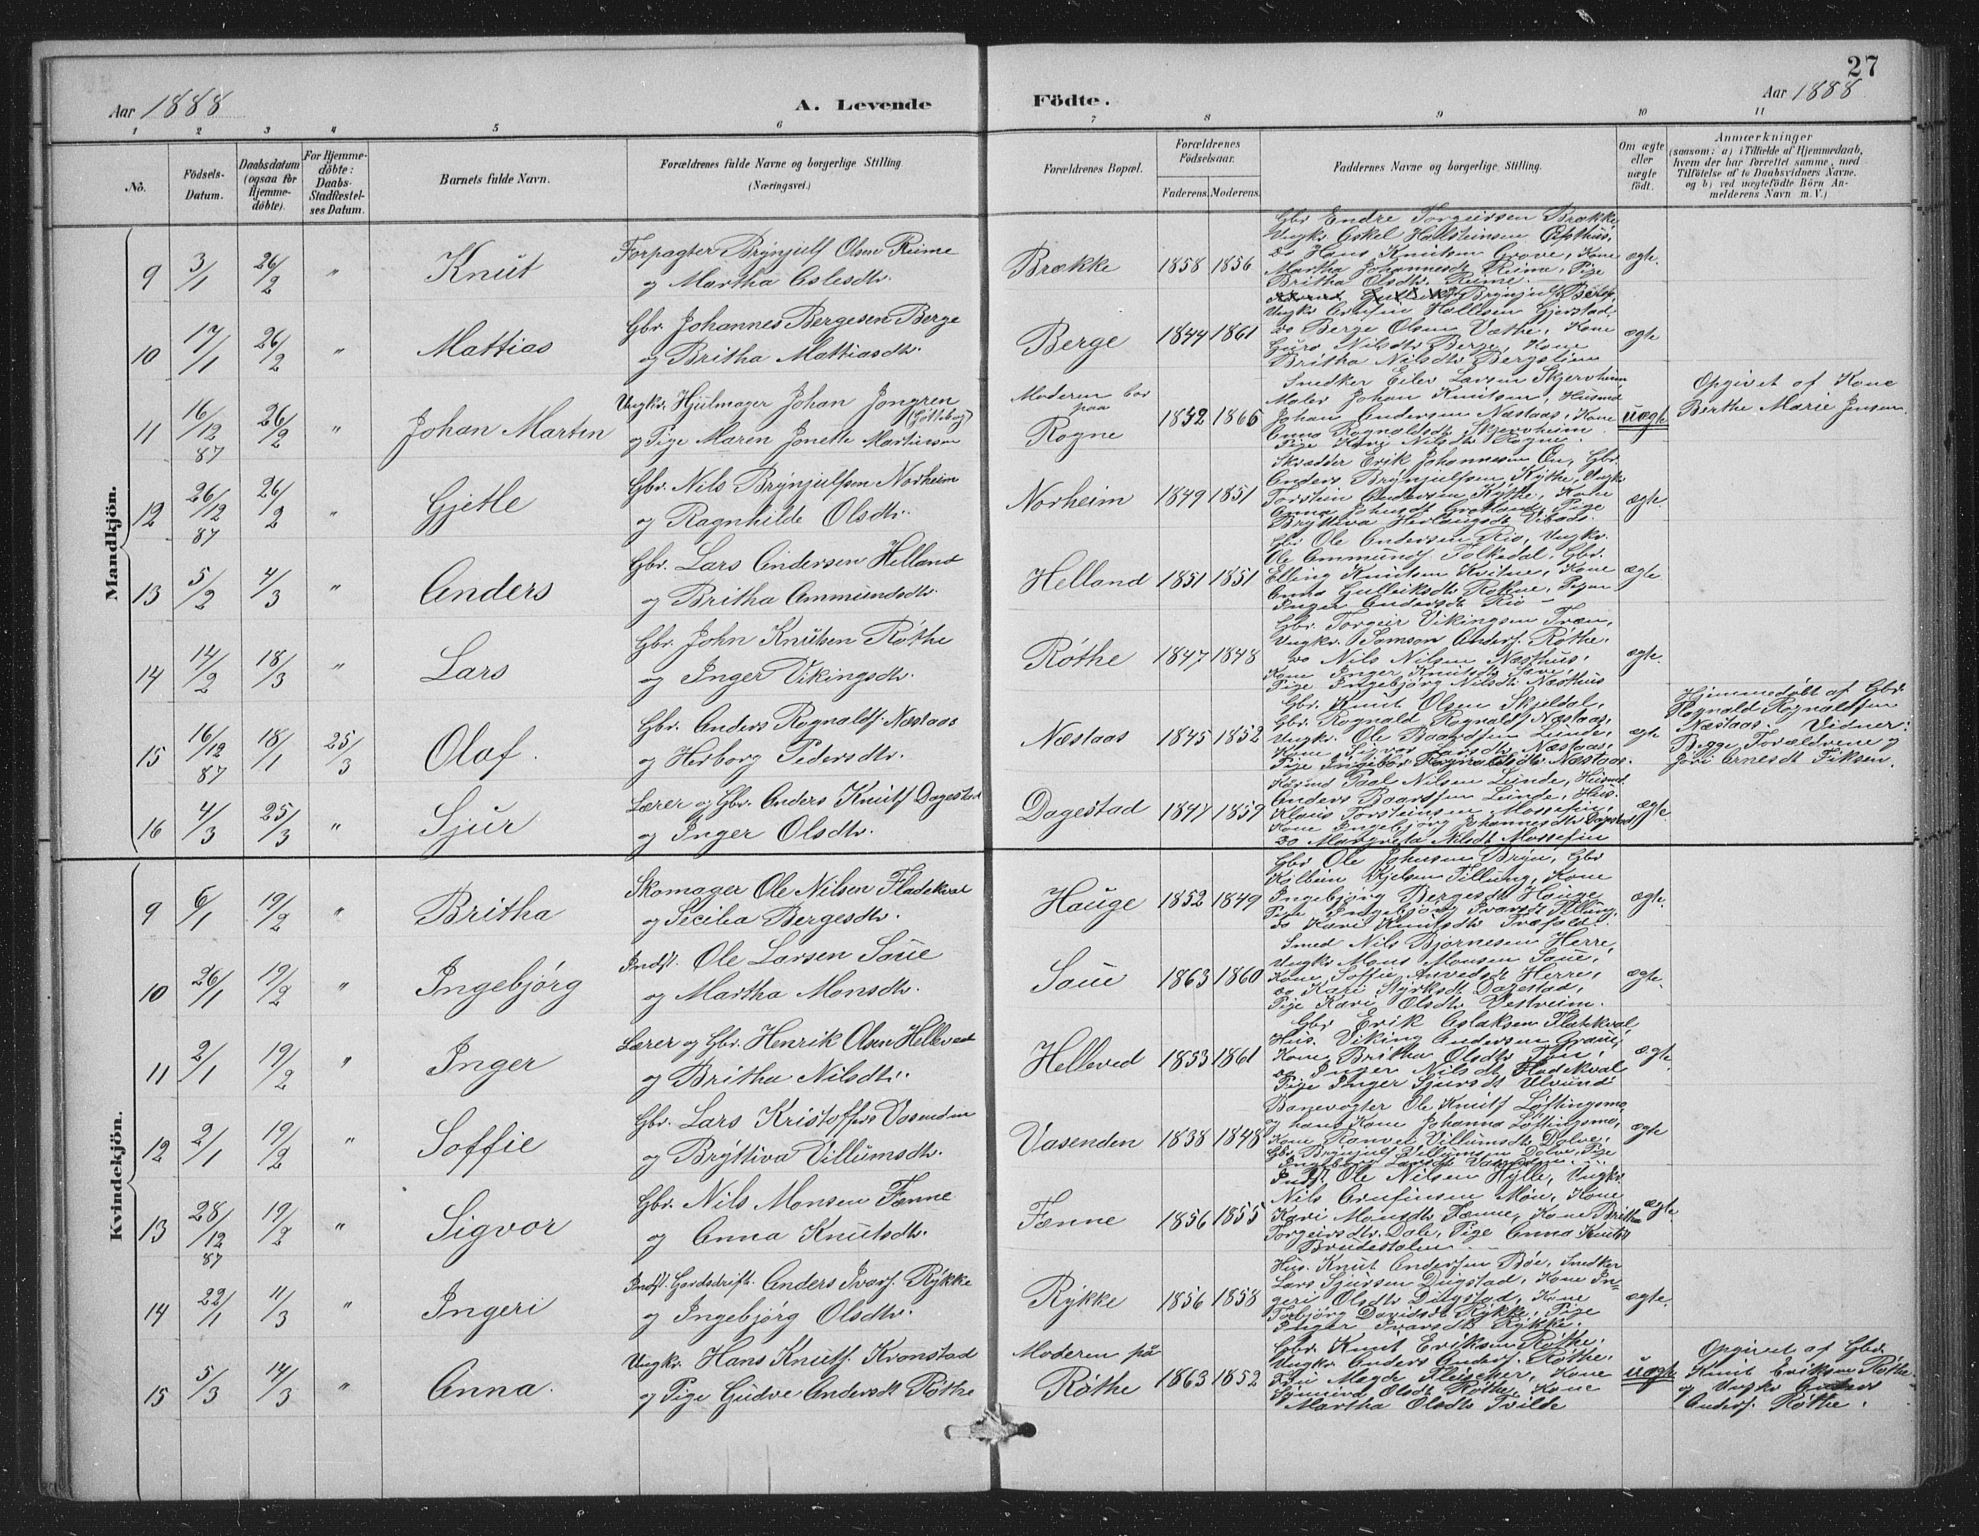 27
Aar 1888
A. Levende
Födte.
Aar 1888
1 2 3 4 5 6 7 8 9 10 11
No.
Födsels-Datum.
Daabsdatum (ogsaa for Hjemme-döbte).
For Hjemme-döbte: Daabs-Stadfæstel-ses Datum.
Barnets fulde Navn.
Forældrenes fulde Navne og borgerlige Stilling.
(Næringsvei.)
Forældrenes Bopæl.
Forældrenes Födselsaar.
Faderens. Moderens.
Faddernes Navne og borgerlige Stilling.
Om ægte eller uægte födt.
Anmærkninger
(saasom: a) i Tilfælde af Hjemmedaab,
hvem der har forrettet samme, med
Tilföielse af to Daabsvidners Navne,
og b) ved uægtefödte Börn An-
melderens Navn m. V.)
Mandkjön.
9 3/1 26/2 " Knut
Forpagter Brynjulf Olsen Rime
og Martha Aslesdtr.
Brække 1858 1856
Gbr Endre Torgeirsen Brække
Ungkr Eskel Hallsteinsen
do Hans Knutsen Grove, Kone
Martha Johannesdt Rime, Pige
Britha Olsdtr Rime.
ægte.
10 17/1 26/2 " Mattias
Gbr. Johannes Bergesen Berge
og Britha Mattiasdtr.
Berge 1844 1861
Brynjulf
Ungkr Arnfin Hallesen Gjerstad,
do Berge Olsen Væthe, Kone
Guro Nilsdtr Berge, Kone
Britha Nilsdtr Bergslien
ægte
11 16/12 87 26/2 " Johan Martin
Ungkr. Hjulmager Johan Jongren
(Göteborg)
og Pige Maren Jonette Martinsen
Moderen bor
paa
Rogne 1842 1866
Snedker Eilev Larsen Skjervheim
Maler Johan Knutsen, Husmd
Johan Andersen Næstaas, Kone
Anna Rognaldsdt Skjervheim
Pige Kari Nilsdt Rogne.
uægte
Opgivet af Kone
Berthe Marie Jensen
12 26/12 87 26/2 " Gjetle
Gbr. Nils Brynjulfsen Norheim
og Ragnhilde Olsdtr.
Norheim 1849 1851
Skrædder Erik Johannesen En, Gbr
Anders Brynjulfsen Kythe, Ungkr
Torstein Andersen Kythe, Kone
Anna Johnsdt Pige
Bryttiva
ægte.
13 5/2 4/3 " Anders
Gbr. Lars Andersen Helland
og Britha Ammundsdtr.
Helland 1851 1851
Gbr Ole Andersen Rio, Ungkr.
Ole Ammundsf Folkedal, Gbr.
Elling Knutsen Kvitne, Kone
Anna Gulleiksdt Röthe, Pigen
Inger Andersdt Rio
ægte
14 14/2 18/3 " Lars
Gbr. John Knutsen Röthe
og Inger Vikingsdtr.
Röthe 1847 1848
Gbr. Torgeir Vikingsen Træn,
Ungkr. Samson Andersf. Röthe.
do Nils Nilsen Næsthus,
Kone Inger Knutsdt Saue,
Pige Ingebjörg Nilsdt Næsthus
ægte.
15 16/12 87 18/1 25/3 Olaf.
Gbr. Anders Rognaldsf. Næstaas
og Herborg Pedersdtr.
Næstaas 1845 1852
Gbr. Knut Olsen Skjeldal,
Gbr. Rognald Rognaldsf Næstaas,
Ungkr. Ole Baardsen Lunde,
Kone Sigvor Larsdt Næstaas,
Pige Ingebor Næstaas.
ægte
Hjemmedöbt af Gbr.
Rognald Rognaldsen
Næstaas. Vidner:
Begge Forældrene og
Jori Arnesdt Fiksen.
16 4/3 25/3 " Sjur
Lærer og Gbr. Anders Knutsf Dagestad
og Inger Olsdtr.
Dagestad 1847 1859
Paal Nilsen Lunde, Husmd
Anders Baardsen Lunde, Hus.
Klaus Torsteinsen Mossefin,
Kone Ingebjörg Johannesdtr Dagestad
do Margreta Nilsdt Mossefin
ægte.
Kvindekjön.
9 6/1 19/2 " Britha
Skomager Ole Nilsen Fladekval
og Secilia Bergesdtr.
Hauge 1852 1849
Gbr. Ole Johnsen Bryn, Gbr
Kolbein Kjelsen Tillung, Kone
Ingebjörg Bergesdt Hauge
Pige Ingebjörg Ivarsdt Tillung,
do Kari Knutsdt
ægte.
10 26/1 19/2 " Ingebjörg
Indst. Ole Larsen Saue
og Martha Monsdtr.
Saue 1863 1860
Smed Nils Bjornesen Herre,
Ungkr Mons Monsen Saue,
Kone Soffie Anvedsdt Herre,
do Kari Styrksdt Dagestad,
Pige Kari Olsdtr Vestreim.
ægte.
11 2/1 19/2 " Inger
Lærer og Gbr. Henrik Olsen Helleved
og Britha Nilsdtr.
Helleved 1853 1861
Gbr Erik Aslaksen Flatekval,
Hus. Viking Andersen Graue,
Kone Britha Olsdtr Tön,
do Inger Nilsdt Fladekval
Pige Inger Sjursdt Ulvund
ægte.
12 2/1 19/2 " Soffie
Gbr. Lars Kristoffers Vasenden
og Bryttiva Villumsdtr.
Vasenden 1838 1848
Banevogter Ole Knutsf Löftingsmo,
og hans Kone Johanna Löftingsmo,
Kone Ranvei Villumsdt Dolve,
Gbr Brynjulf Villumsen Dolve, Pige
Ingeborg Larsdt Vasenden
ægte
13 28/12 87 19/2 " Sigvor
Gbr. Nils Monsen Fenne
og Anna Knutsdtr.
Fenne 1856 1855
Indst. Ole Nilsen Hylle, Ungkr
Nils Arnfinsen Möen, Kone
Kari Monsdtr Fenne, Kone Britha
Torgeirsdtr. Dale, Pige Anna Knutsdt
Brudestolen
ægte.
14 22/1 11/3 " Ingeri
Indst. Gardsdrift. Anders Ivarsf. Rykke
og Ingebjörg Olsdtr.
Rykke 1856 1858
Hus. Knut Andersen Böe, Snedker
Lars Sjursen Dugstad, Kone In-
geri Olsdtr Dugstad, Kone
Torbjörg Davidsdt Rykke, Pige
Inger Ivarsdt Rykke.
ægte.
15 5/3 14/3 " Anna.
Ungkr. Hans Knutsf. Kronstad
og Pige Gudve Andersdt Röthe
Moderen på
Röthe 1863 1852
Gbr. Knut Eriksen Röthe,
Ungkr. Anders Andersf. Röthe,
Fru Magde Fleischer, Kone
Synneva Olsdt Röthe, Kone
Martha Olsdtr Tvilde
uægte
Opgivet af Gbr.
Knut Eriksen Röthe
og Ungkr Anders
Andersf. Röthe.